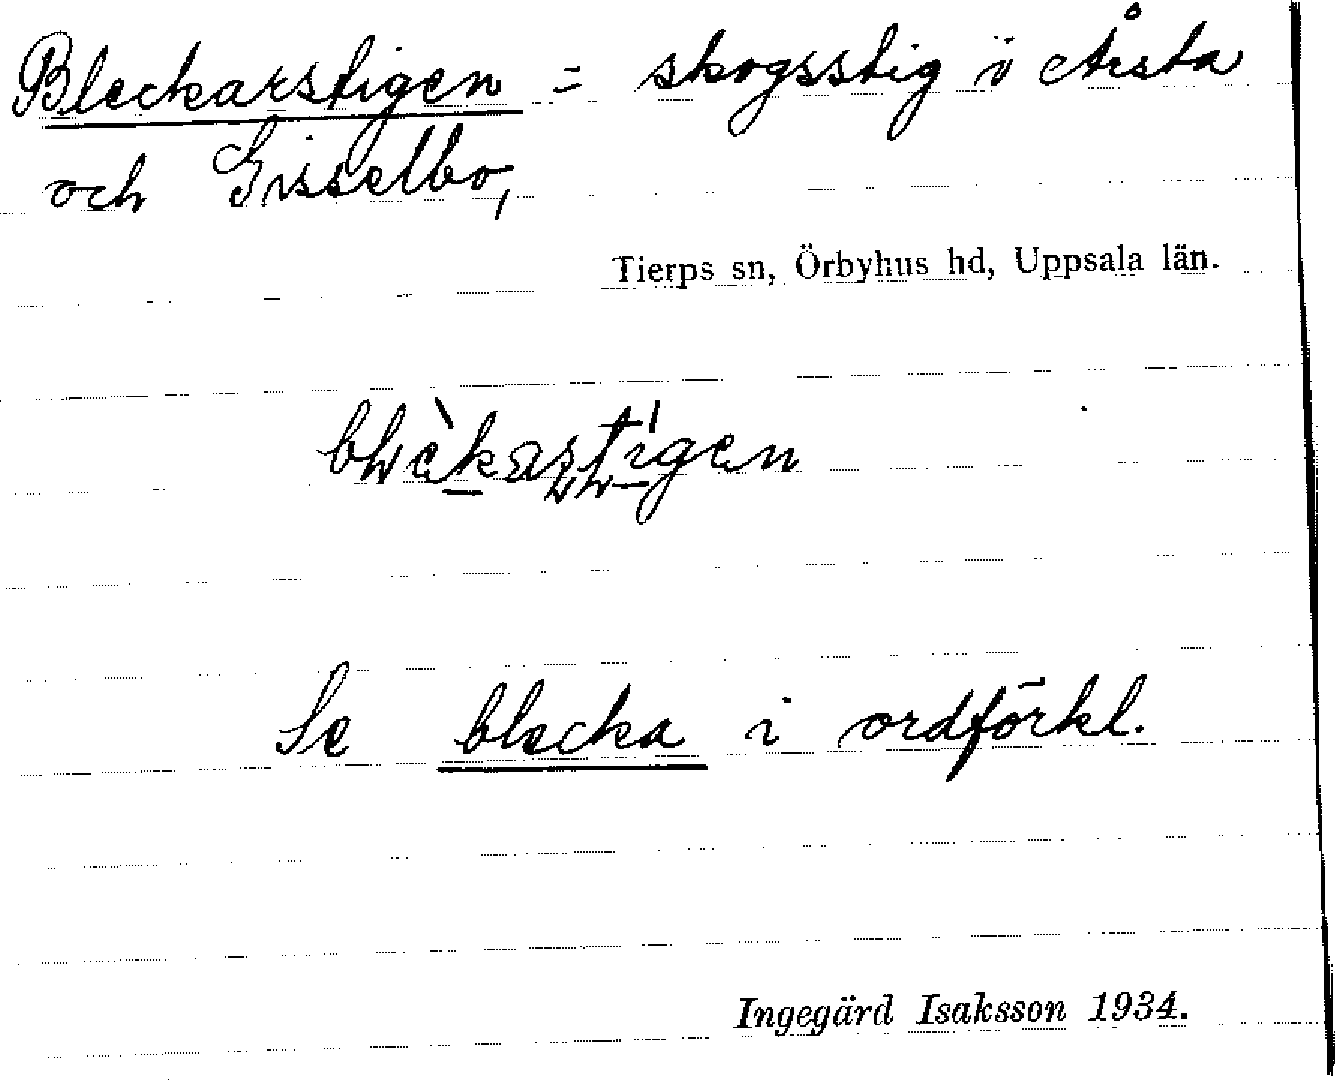 Bleckarstigen = skogsstig i Årsta
och Gisselbo,
Tierps sn, Örbyhus hd, Uppsala län.
Se blecka i ordförkl.
Ingegärd Isaksson 1934.